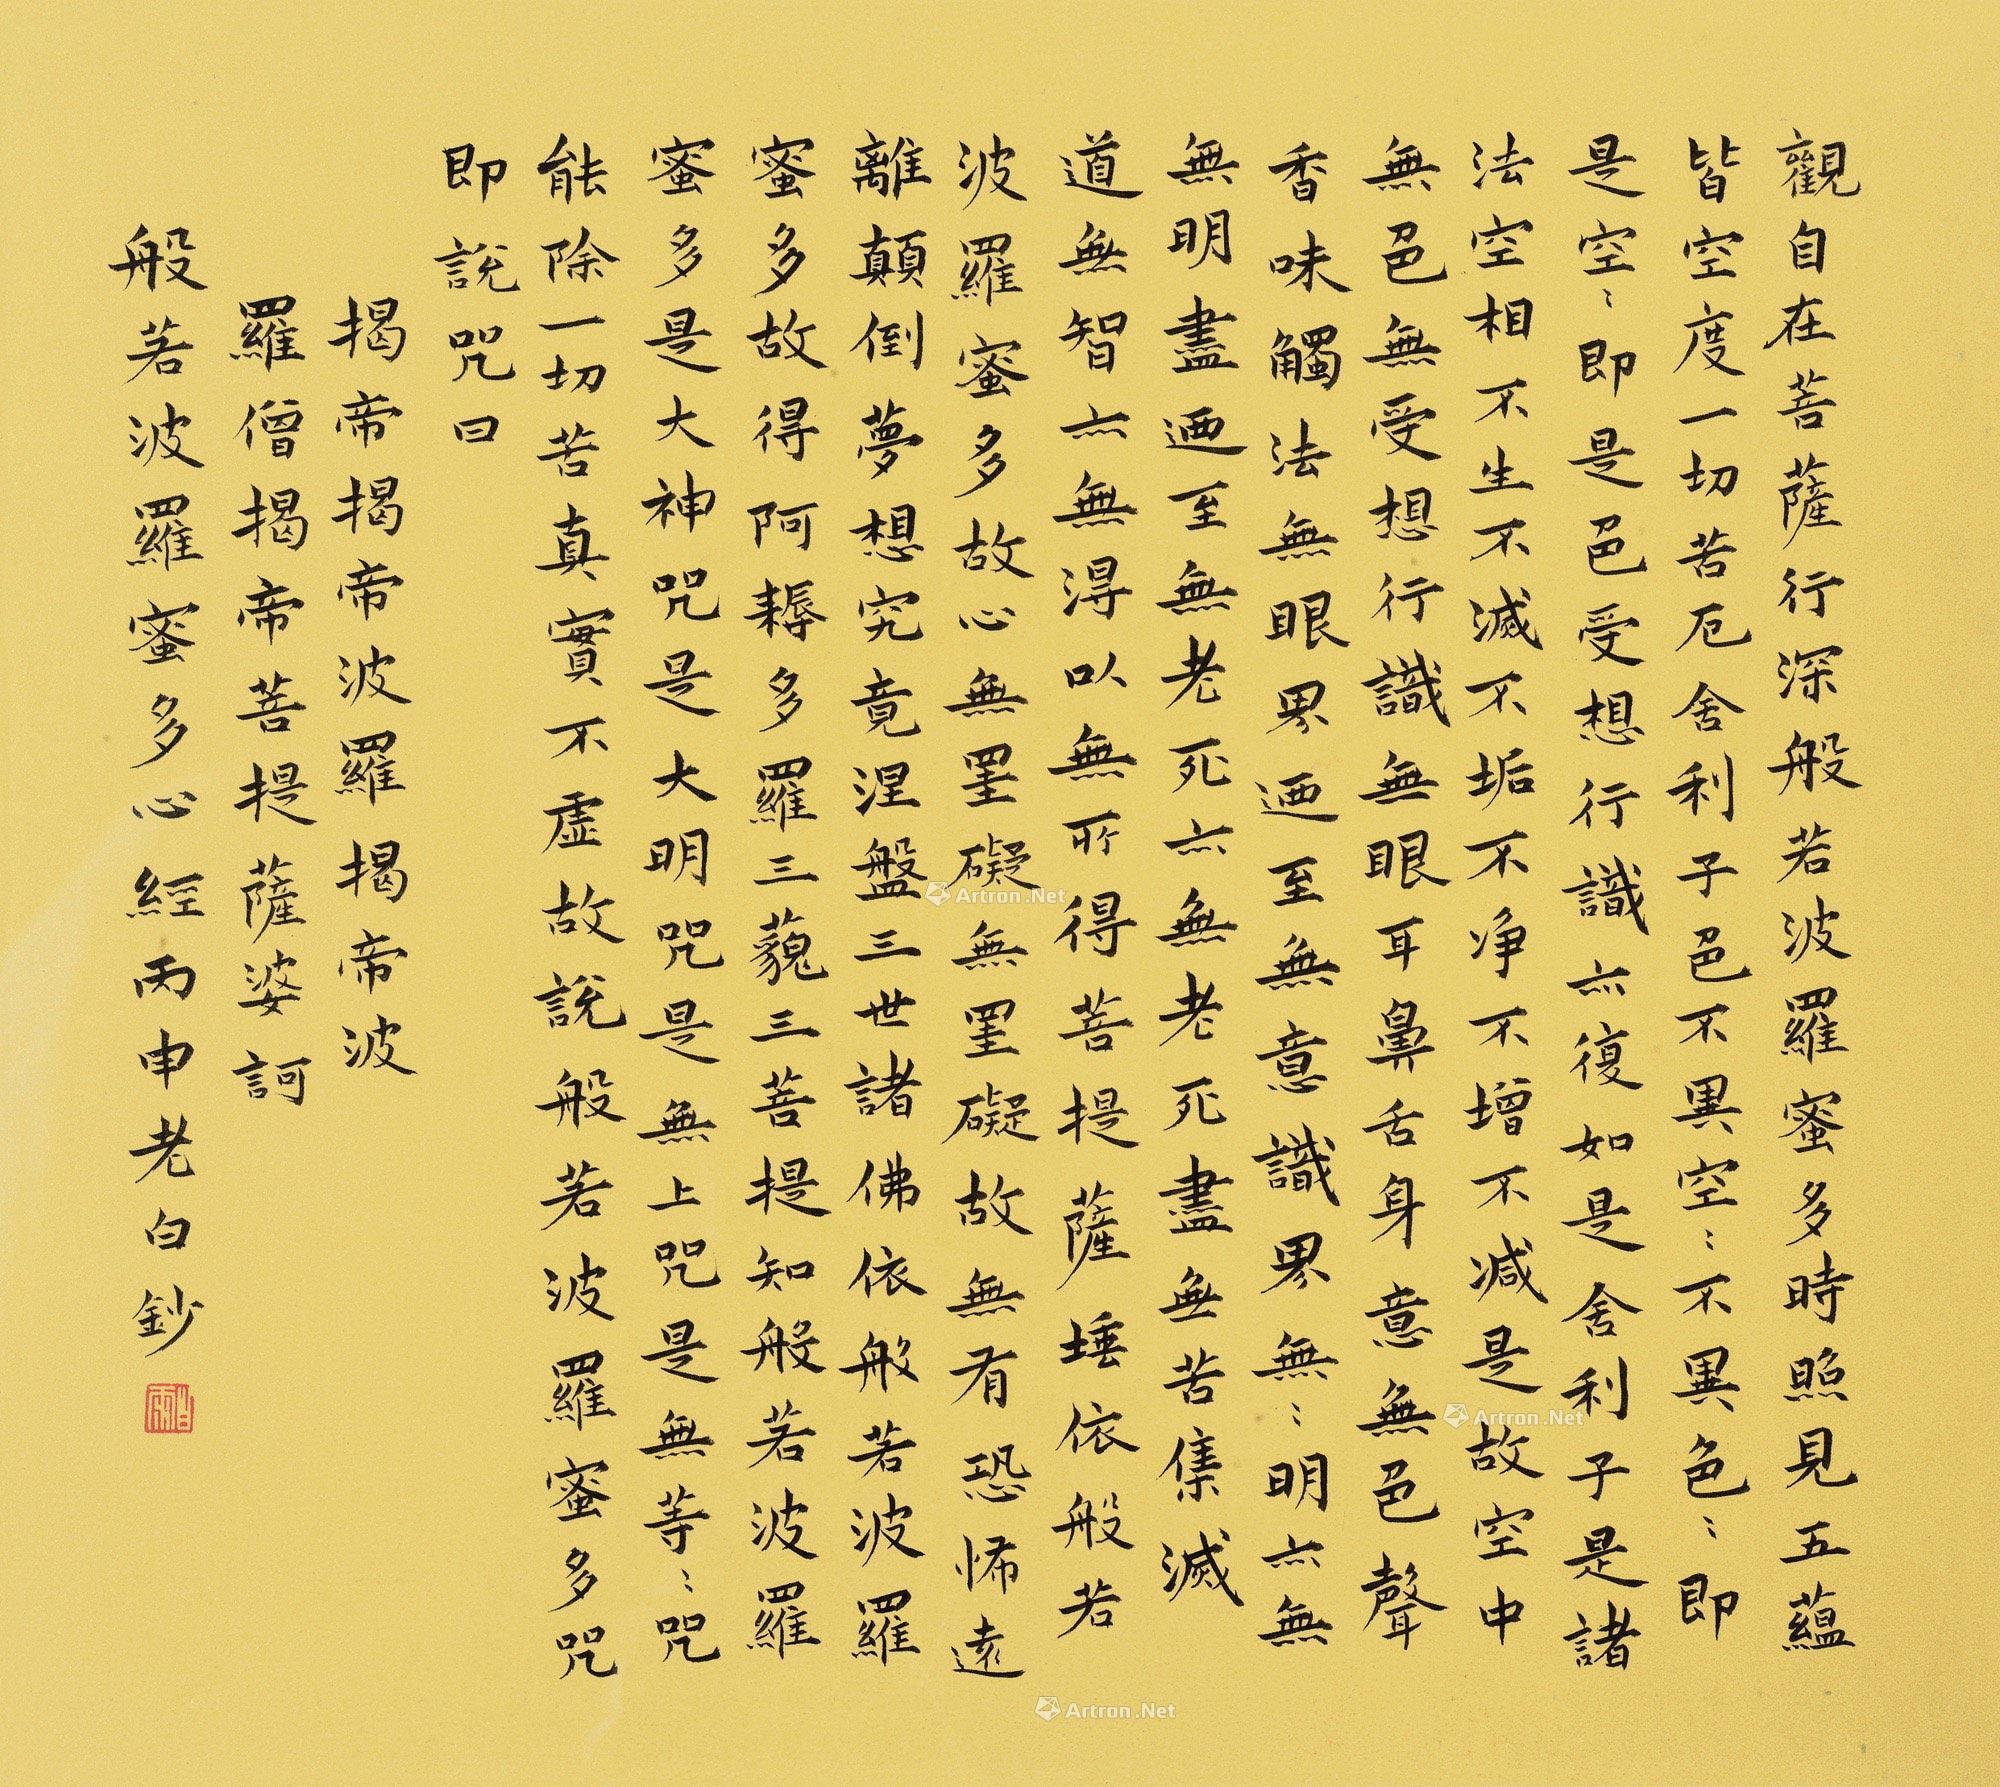 觀自在菩薩行深般若波羅蜜多時照見五蘊
皆空度一切苦厄舍利子色不異空〻不異色〻即
是空〻即是色受想行識亦復如是舍利子是諸
法空相不生不滅不垢不净不增不減是故空中
無色無受想行識無眼耳鼻舌身意無色聲
香味觸法無眼界迺至無意識界無〻明亦無
無明盡迺至無老死亦無老死盡無苦集滅
道無智亦無淂以無所得菩提薩埵依般若
波羅蜜多故心無罣礙無罣礙故無有恐怖遠
離顛倒夢想究竟涅盤三世諸佛依般若波羅
蜜多故得阿耨多羅三藐三菩提知般若波羅
蜜多是大神咒是大明咒是無上咒是無等〻咒
能除一切苦真實不虛故說般若波羅蜜多咒
即說咒曰
揭帝揭帝波羅揭帝波
羅僧揭帝菩提薩婆訶
般若波羅蜜多心經丙申老白鈔
Artron.Net
Artron.Net
Artron.Net